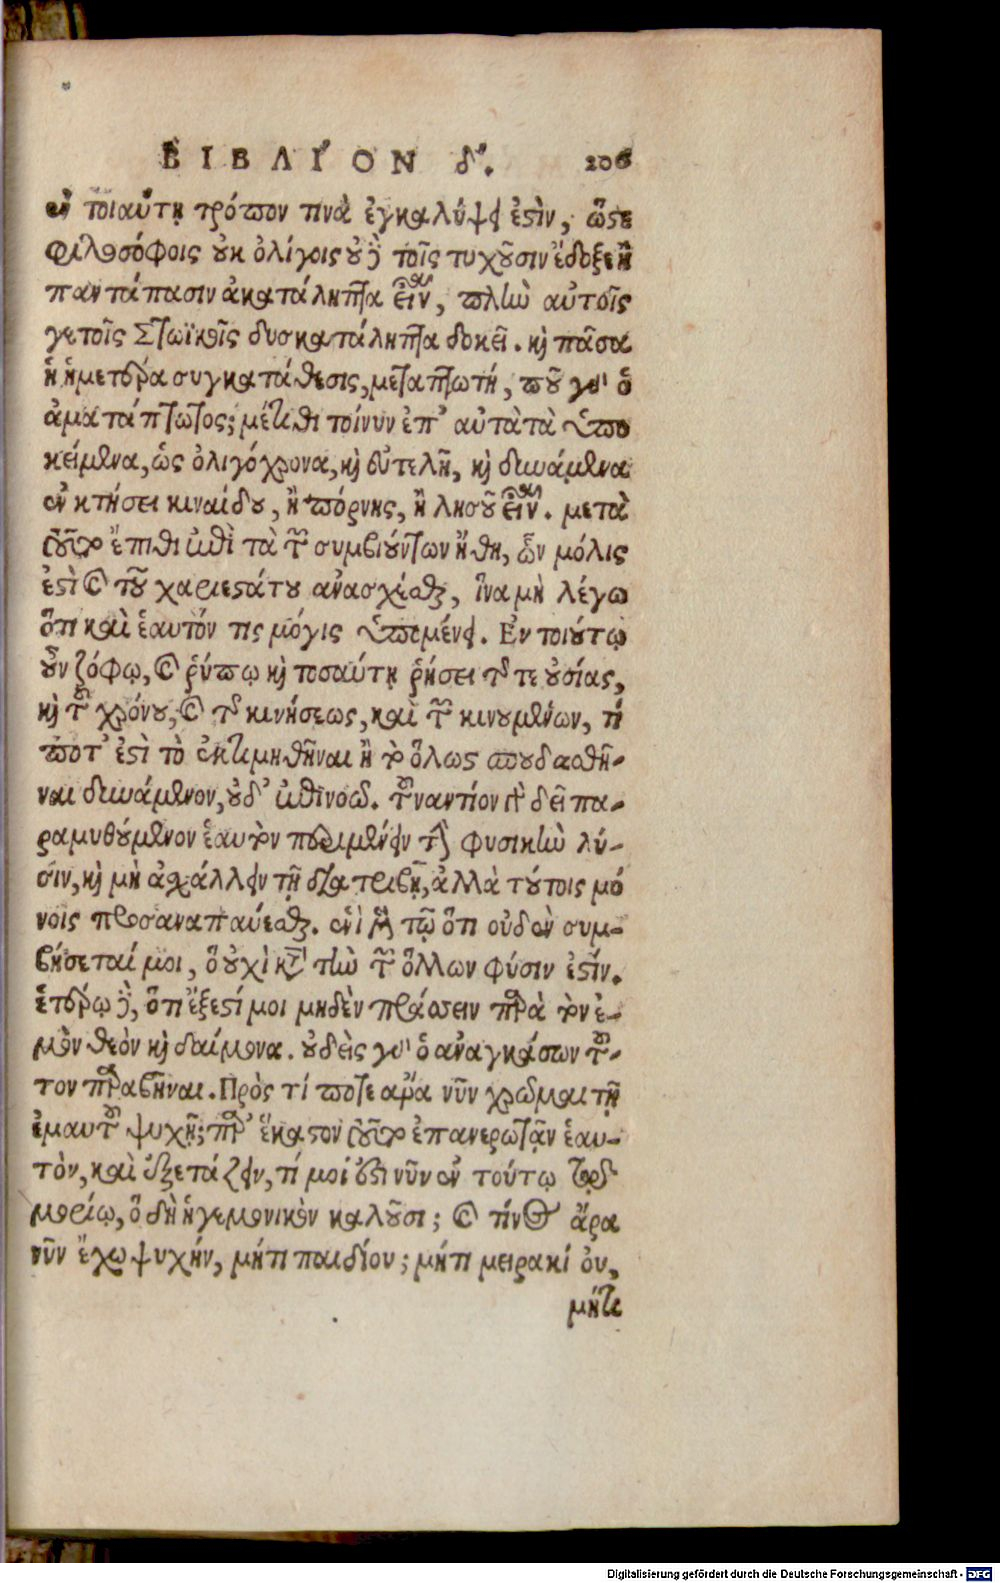 ΒΙΒΛΙ´ΟΝ δ´. 206
ἐν τοιαύτῃ τρόπον τινὰ ἐγκαλύψει ἐστὶν, ὥστε
φιλοσόφοις οὐκ ὀλίγοις οὐδὲ τοῖς τυχοῦσιν ἔδοξεν
παντάπασιν ἀκατάληπτα εἶναι, πλὴν αὐτοῖς
γε τοῖς Στωϊκοῖς δυσκατάληπτα δοκεῖ. καὶ πᾶσα
ἡ ἡμετέρα συγκατάθεσις, μεταπτωτή, ποῦ γὰρ ὁ
ἀματάπτωτος; μέτιθι τοίνυν ἐπ' αὐτὰ τὰ ὑπο
κείμενα, ὡς ὀλιγόχρονα, καὶ εὐτελῆ, καὶ δυνάμενα
ἐν κτήσει κιναίδου, ἢ πόρνης, ἢ λῃστοῦ εἶναι. μετὰ
τοῦτο ἔπιθι ἐπὶ τὰ τῶν συμβιούντων ἤθη, ὧν μόλις
ἐστὶ καὶ τοῦ χαριεστάτου ἀνασχέσθαι, ἵνα μὴ λέγω
ὅτι καὶ ἑαυτόν τις μόγις ὑπομένει. Εν τοιούτῳ
οὖν ζόφῳ, καὶ ῥύπῳ καὶ τοσαύτῃ ῥήσει τῆς τε οὐσίας,
καὶ τοῦ χρόνου, καὶ τῆς κινήσεως, καὶ τῶν κινουμένων, τί
ποτ' ἐστὶ τὸ ἐκτιμηθῆναι ἢ τὸ ὅλως σπουδασθῆ-
ναι δυνάμενον, οὐδ' ἐπινοῶ. τοὐναντίον γὰρ δεῖ πα-
ραμυθούμενον ἑαυτὸν περιμένειν τὴν φυσικὴν λύ-
σιν, καὶ μὴ ἀχάλλειν τῇ διατριβῇ, ἀλλὰ τούτοις μό
νοις προσαναπαύεσθαι. ἑνὶ μὲν τῷ ὅτι οὐδὲν συμ-
βήσεταί μοι, ὃ οὐχὶ κατὰ τὴν τῶν ὅλλων φύσιν ἐστίν.
ἑτέρῳ δὲ, ὅτι ἔξεστί μοι μηδὲν πράσσειν παρὰ τὸν ἐ-
μὸν θεὸν καὶ δαίμονα. οὐδεὶς γὰρ ὁ ἀναγκάσων τοῦ-
τον παραβῆναι. Πρὸς τί ποτε ἄρα νῦν χρῶμαι τῇ
ἐμαυτοῦ ψυχῇ; παρ' ἕκαστον τοῦτο ἐπανερωτᾷν ἑαυ-
τὸν, καὶ ἐξετάζειν, τί μοί ἐστι νῦν ἐν τούτῳ τῷ
μορίῳ, ὃ δὴ ἡγεμονικὸν καλοῦσι; καὶ τίνος ἄρα
νῦν ἔχω ψυχήν, μήτι παιδίου; μήτι μειρακί ου,
μήτε
Digitalisierung gefördert durch die Deutsche Forschungsgemeinschaft - DFG